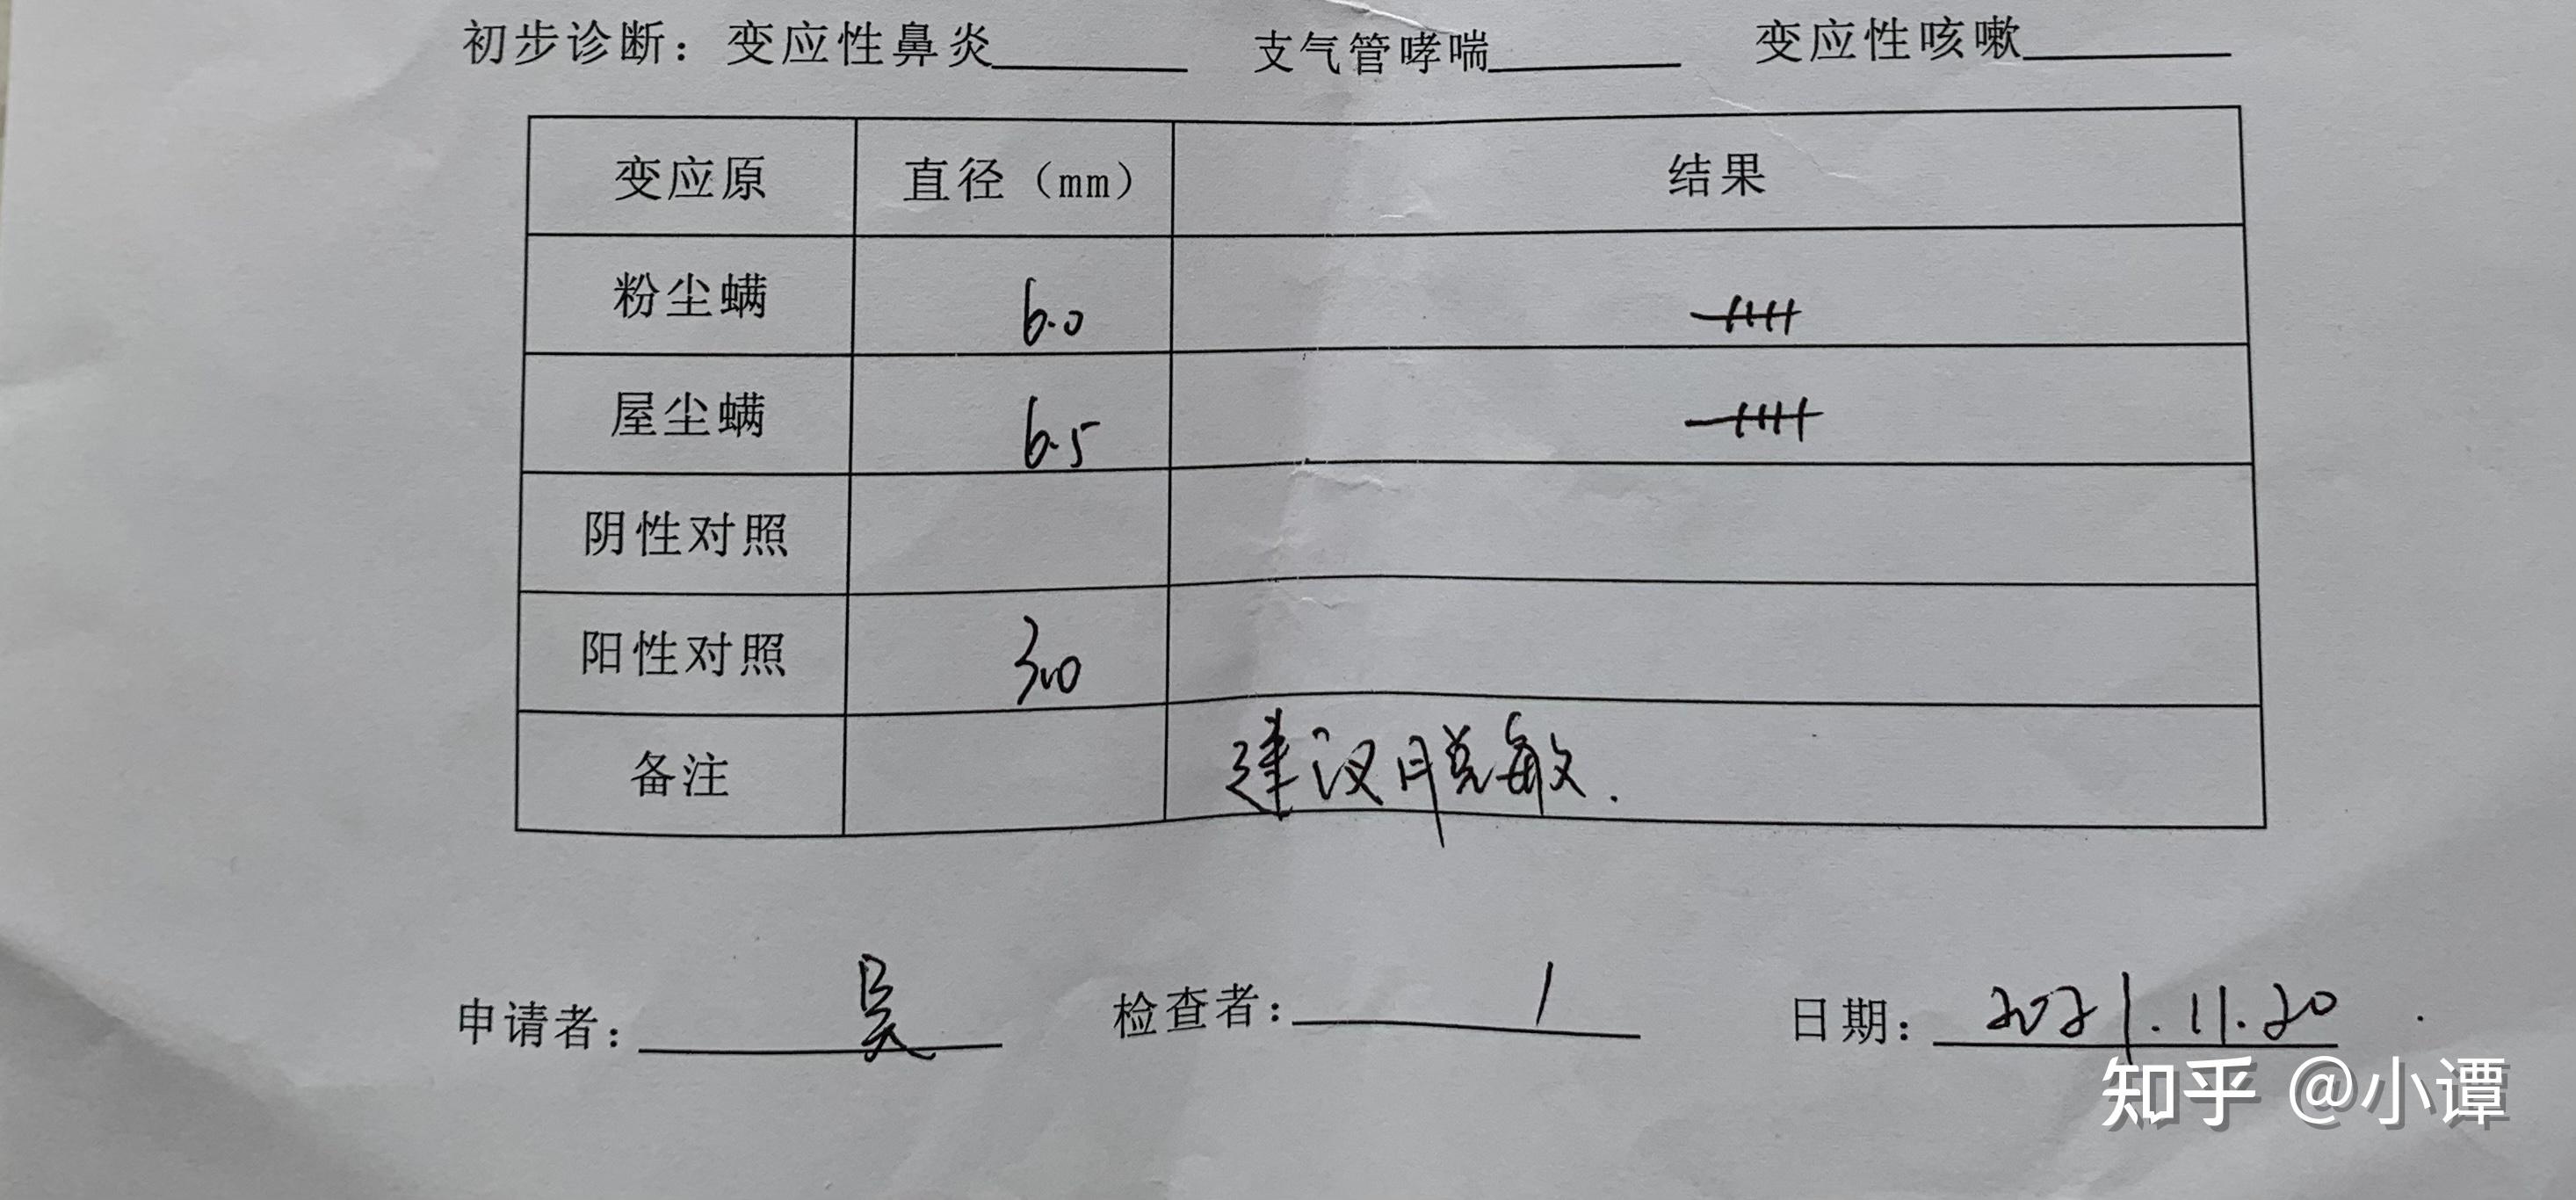 初步诊断：变应性鼻炎______ 支气管哮喘______ 变应性咳嗽______
变应原 直径（mm） 结果
粉尘螨 6.0 ++++
屋尘螨 6.5 ++++
阴性对照
阳性对照 3.0
备注 建议脱敏.
申请者：吴 检查者： 日期：2021.11.20
知乎 @小谭